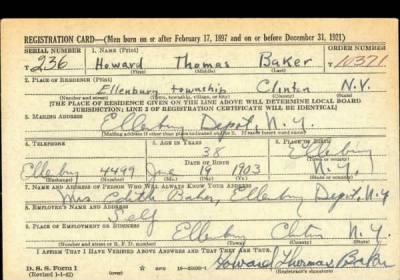 REGISTRATION CARD—(Men born on or after February 17, 1897 and on or before December 31, 1921)
SERIAL NUMBER 1. NAME (Print) ORDER NUMBER
T 236 Howard Thomas Baker T 10371
(First) (Middle) (Last)
2. PLACE OF RESIDENCE (Print)
Ellenburg township Clinton N.Y.
(Number and street) (Town, township, village, or city) (County) (State)
[THE PLACE OF RESIDENCE GIVEN ON THE LINE ABOVE WILL DETERMINE LOCAL BOARD
JURISDICTION; LINE 2 OF REGISTRATION CERTIFICATE WILL BE IDENTICAL]
3. MAILING ADDRESS
Ellenburg Depot, N.Y.
[Mailing address if other than place indicated on line 2. If same insert word same]
4. TELEPHONE 5. AGE IN YEARS 6. PLACE OF BIRTH
38 Ellenburg
DATE OF BIRTH (Town or county)
Ellenburg 4499 June 19 1903 N.Y.
(Exchange) (Number) (Mo.) (Day) (Yr.) (State or country)
7. NAME AND ADDRESS OF PERSON WHO WILL ALWAYS KNOW YOUR ADDRESS
Mrs Edith Baker, Ellenburg Depot, N.Y.
8. EMPLOYER'S NAME AND ADDRESS
Self
9. PLACE OF EMPLOYMENT OR BUSINESS
Ellenburg Clinton N.Y.
(Number and street or R. F. D. number) (Town) (County) (State)
I AFFIRM THAT I HAVE VERIFIED ABOVE ANSWERS AND THAT THEY ARE TRUE.
D. S. S. Form 1 Howard Thomas Baker
(Revised 1-1-42) (Registrant's signature)